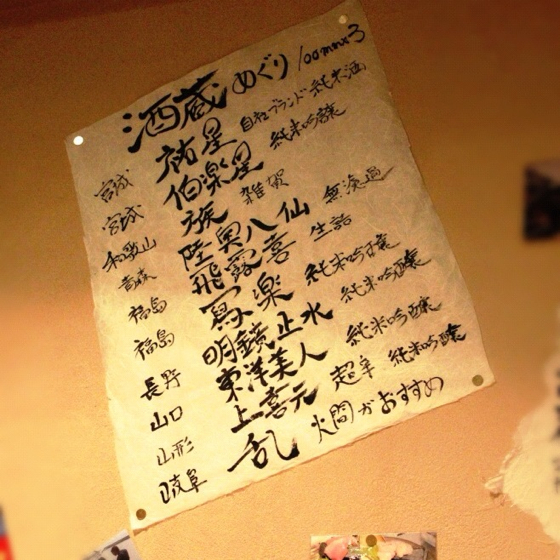 酒蔵めぐり 100mm×3
宮城 祐星 自社ブランド純米酒
宮城 伯楽星 純米吟醸
和歌山 族 雑賀
青森 陸奥八仙 無濾過
福島 飛露喜 生詰
福島 寫楽 純米吟醸
長野 明鏡止水 純米吟醸
山口 東洋美人 純米吟醸
山形 上喜元 超辛 純米吟醸
岐阜 乱 火間がおすすめ